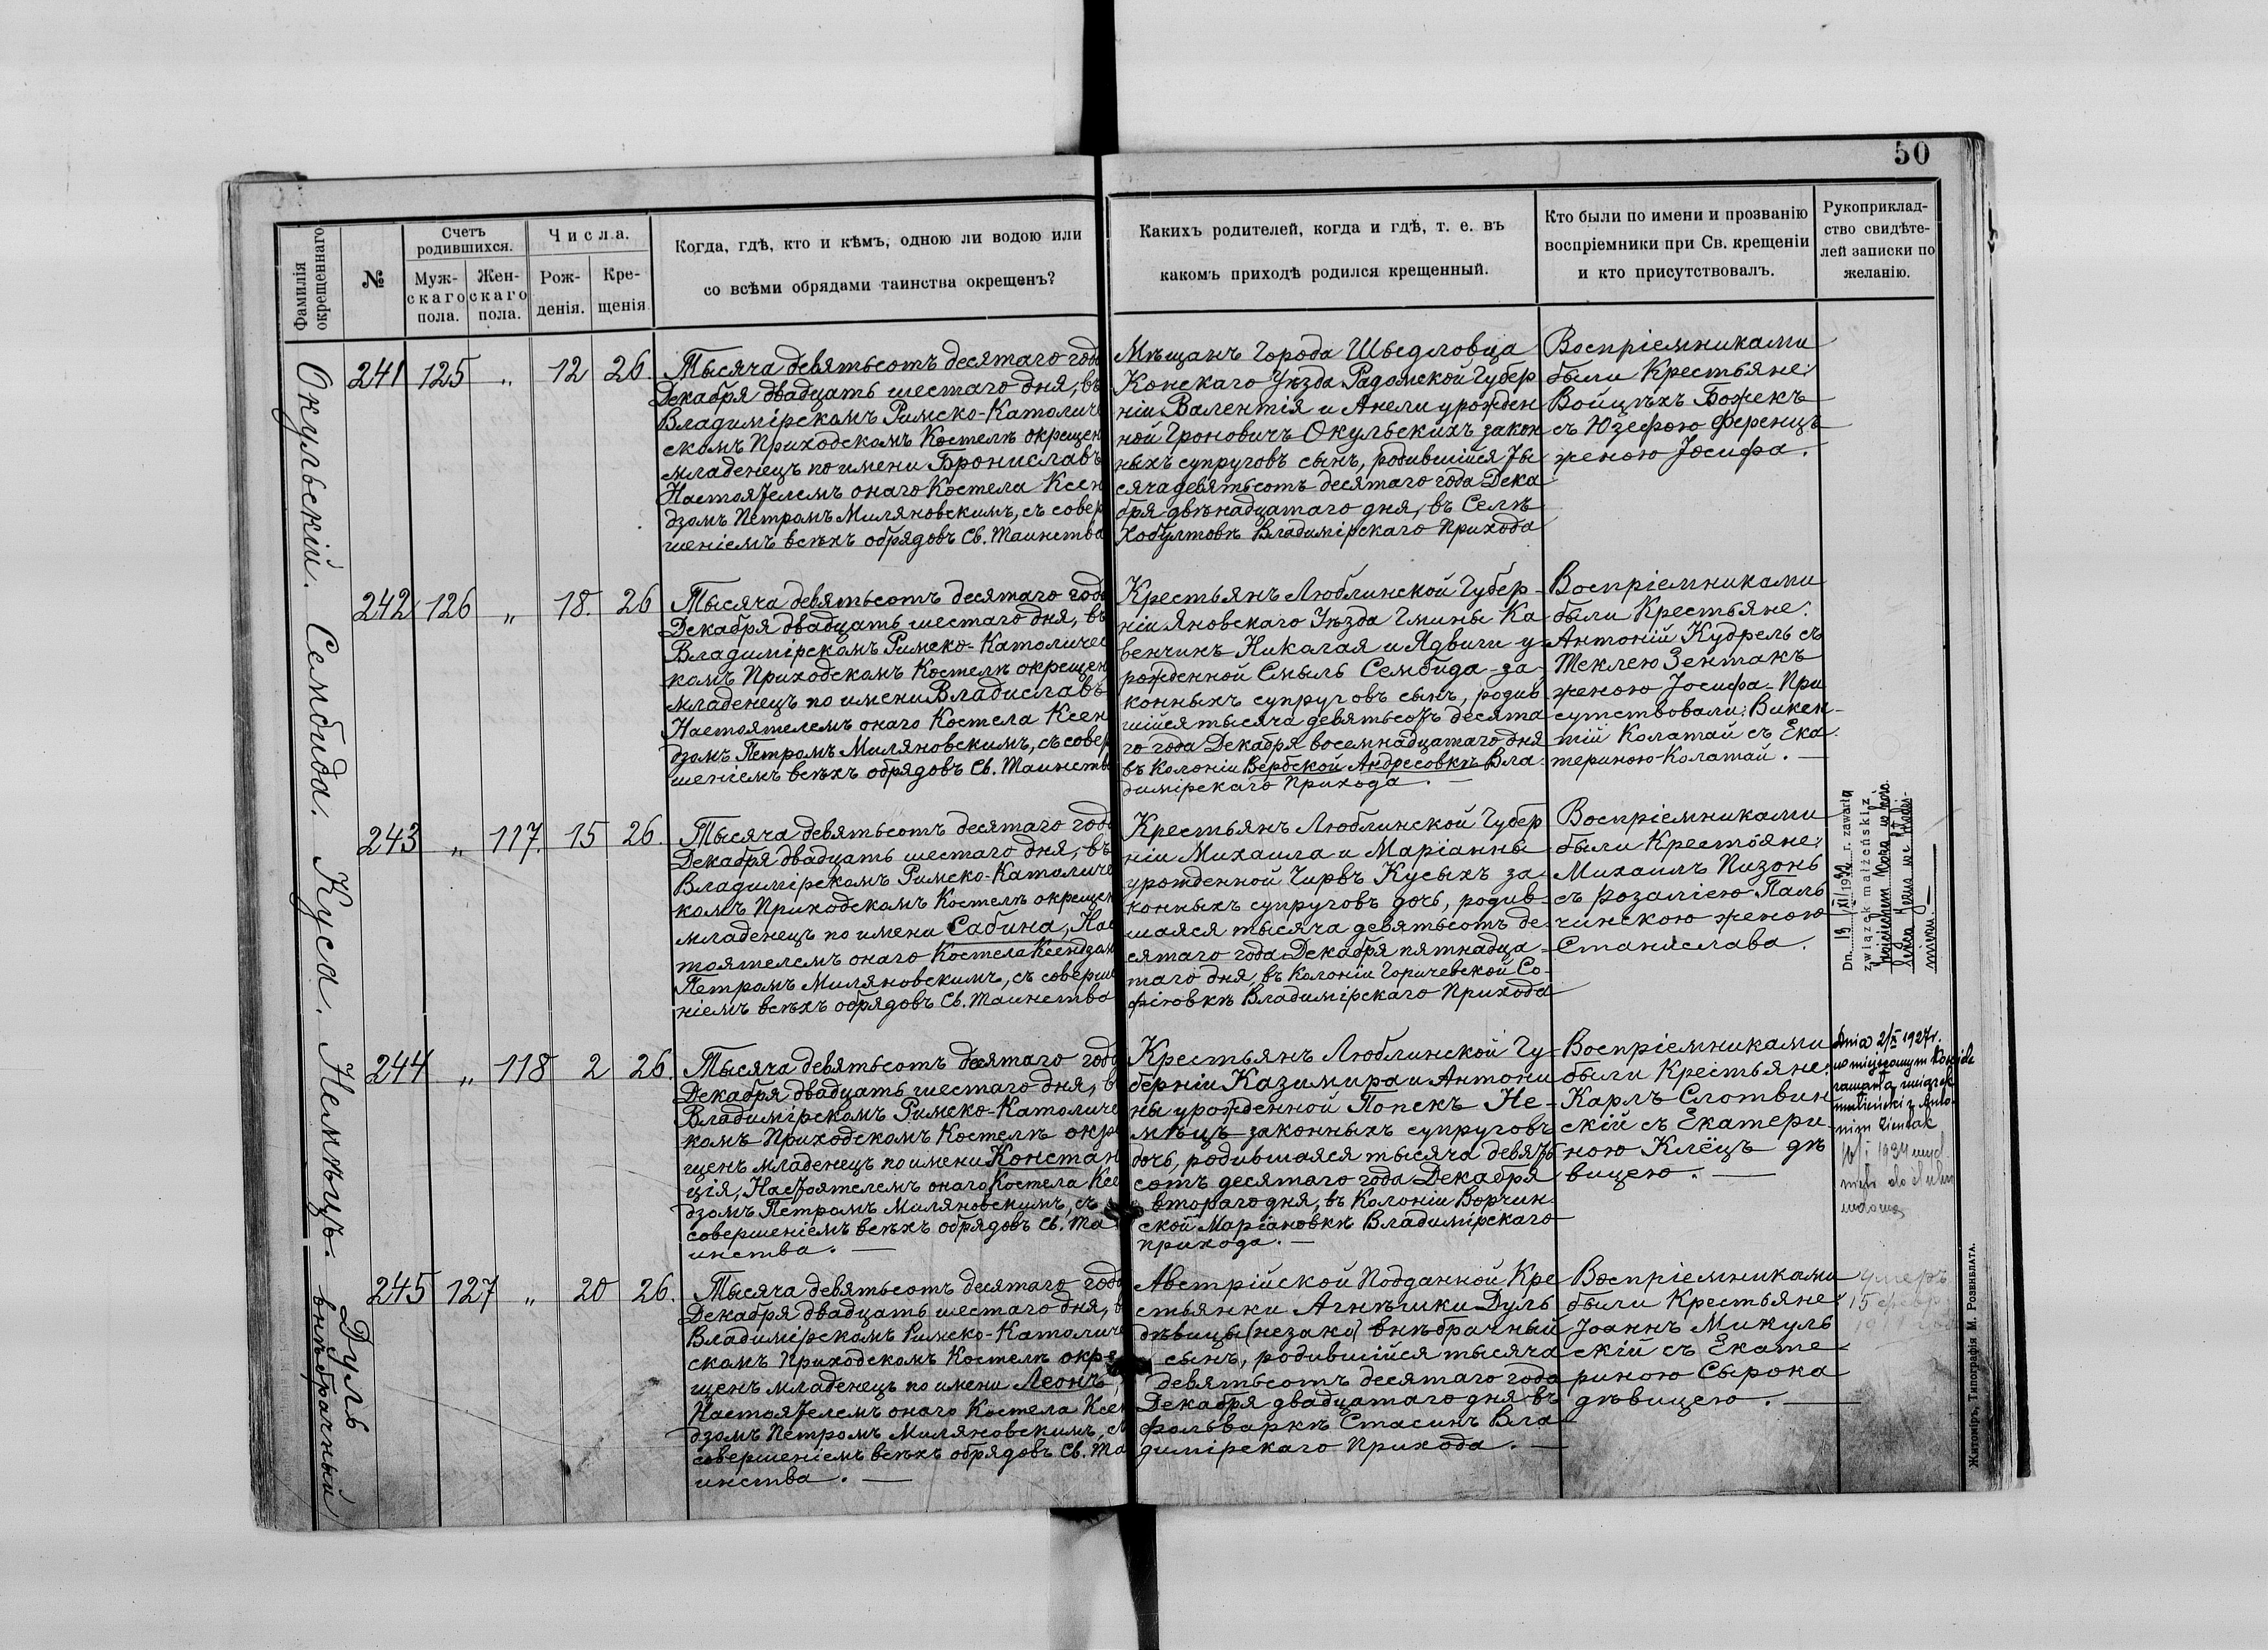 50
Фамилія окрещеннаго.
№
Счетъ родившихся.
Муж-
скаго
пола.
Жен-
скаго
пола.
Числа.
Рож-
денія.
Кре-
щенія
Когда, гдѣ, кто и кѣмъ, одною ли водою или
со всѣми обрядами таинства окрещенъ?
Какихъ родителей, когда и гдѣ, т. е. въ
какомъ приходѣ родился крещенный.
Кто были по имени и прозванію
воспріемники при Св. крещеніи
и кто присутствовалъ.
Рукоприклад-
ство свидѣте-
лей записки по
желанію.
Окульскій.
241 125 „ 12 26.
Тысяча девятьсотъ десятаго года
Декабря двадцать шестаго дня, въ
Владимірскомъ Римско-Католиче
скомъ Приходскомъ Костелѣ окрещен
младенецъ по имени Брониславъ
Настоятелемъ онаго Костела Ксен
дзомъ Петромъ Миляновскимъ, съ совер
шеніемъ всѣхъ обрядовъ Св. Таинства
Мѣщанъ Города Шыдловца
Конскаго Уѣзда Радомской Губер
ніи Валентія и Анели урожден
ной Гроновичъ Окульскихъ закон
ныхъ супруговъ сынъ, родившійся Ты
сяча девятьсотъ десятаго года Дека
бря двѣнадцатаго дня, въ Селѣ
Хобултовѣ Владимірскаго Прихода
Воспріемниками
были Крестьяне:
Войцѣхъ Божекъ
съ Юзефою Ференцъ
женою Іосифа.
Сембида.
242 126 „ 18. 26
Тысяча девятьсотъ десятаго года
Декабря двадцать шестаго дня, въ
Владимірскомъ Римско-Католичес
комъ Приходскомъ Костелѣ окрещен
младенецъ по имени Владиславъ
Настоятелемъ онаго Костела Ксен
дзомъ Петромъ Миляновскимъ, съ совер
шеніемъ всѣхъ обрядовъ Св. Таинства
Крестьянъ Люблинской Губер-
ніи Яновскаго Уѣзда Гмины Ка
венчинъ Николая и Ядвиги у-
рожденной Смыль Сембида за-
конныхъ супруговъ сынъ, родив
шійся тысяча девятьсотъ десята
го года Декабря восемнадцатаго дня
въ Колоніи Вербской Андресовкѣ Вла-
димірскаго Прихода. —
Воспріемниками
были Крестьяне:
Антоній Кудрель съ
Теклею Зентакъ
женою Іосифа. При
сутствовали: Викен-
тій Колатай съ Ека
териною Колатай. —
Куса.
243 „ 117. 15 26.
Тысяча девятьсотъ десятаго года
Декабря двадцать шестаго дня, въ
Владимірскомъ Римско-Католичес
комъ Приходскомъ Костелѣ окрещен
младенецъ по имени Сабина, Нас
тоятелемъ онаго Костела Ксендзом
Петромъ Миляновскимъ, съ соверше
ніемъ всѣхъ обрядовъ Св. Таинства
Крестьянъ Люблинской Губер
ніи Михаила и Маріанны
урожденной Чирвъ Кусыхъ за
конныхъ супруговъ дочь, родив-
шаяся тысяча девятьсотъ де-
сятаго года Декабря пятнадца-
таго дня, въ Колоніи Горичевской Со-
фіювкѣ Владимірскаго Прихода
Воспріемниками
были Крестьяне:
Михаилъ Пизонь
съ Розаліею Паль
чинскою женою
Станислава.
Dn. 19/XI 1932 r. zawarta
związek małżeński z
Немѣцъ.
244 „ 118 2 26.
Тысяча девятьсотъ десятаго года
Декабря двадцать шестаго дня, в
Владимірскомъ Римско-Католичес
комъ Приходскомъ Костелѣ окре
щенъ младенецъ по имени Констан
ція, Настоятелемъ онаго Костела Ксен
дзомъ Петромъ Миляновскимъ, съ
совершеніемъ всѣхъ обрядовъ Св. Та
инства. —
Крестьянъ Люблинской Гу-
берніи Казимира и Антони
ны урожденной Попекъ Не-
мѣцъ законныхъ супруговъ
дочь, родившаяся тысяча девять
сотъ десятаго года Декабря
втораго дня, въ Колоніи Ворчин-
ской Маріановкѣ Владимірскаго
Прихода. —
Воспріемниками
были Крестьяне:
Карлъ Слотвин
скій съ Екатери-
ною Клёцъ дѣ
вицею. —
Dnia 2/X 1927 r.
Дуль
внѣбрачный
245 127 „ 20 26.
Тысяча девятьсотъ десятаго года
Декабря двадцать шестаго дня, в
Владимірскомъ Римско-Католиче
скомъ Приходскомъ Костелѣ окре
щенъ младенецъ по имени Леонъ,
Настоятелемъ онаго Костела Ксен
дзомъ Петромъ Миляновскимъ, съ
совершеніемъ всѣхъ обрядовъ Св. Та
инства. —
Австрійской Подданной Кре
стьянки Агнѣшки Дуль
дѣвицы (незако) внѣбрачный
сынъ, родившійся тысяча
девятьсотъ десятаго года
Декабря двадцатаго дня въ
фольваркѣ Стасинъ Вла
димірскаго Прихода. —
Воспріемниками
были Крестьяне:
Іоаннъ Микуль
скій съ Екате
риною Сырока
дѣвицею. —
Умеръ
15 февр.
Житоміръ, Типографія М. Розенблата.